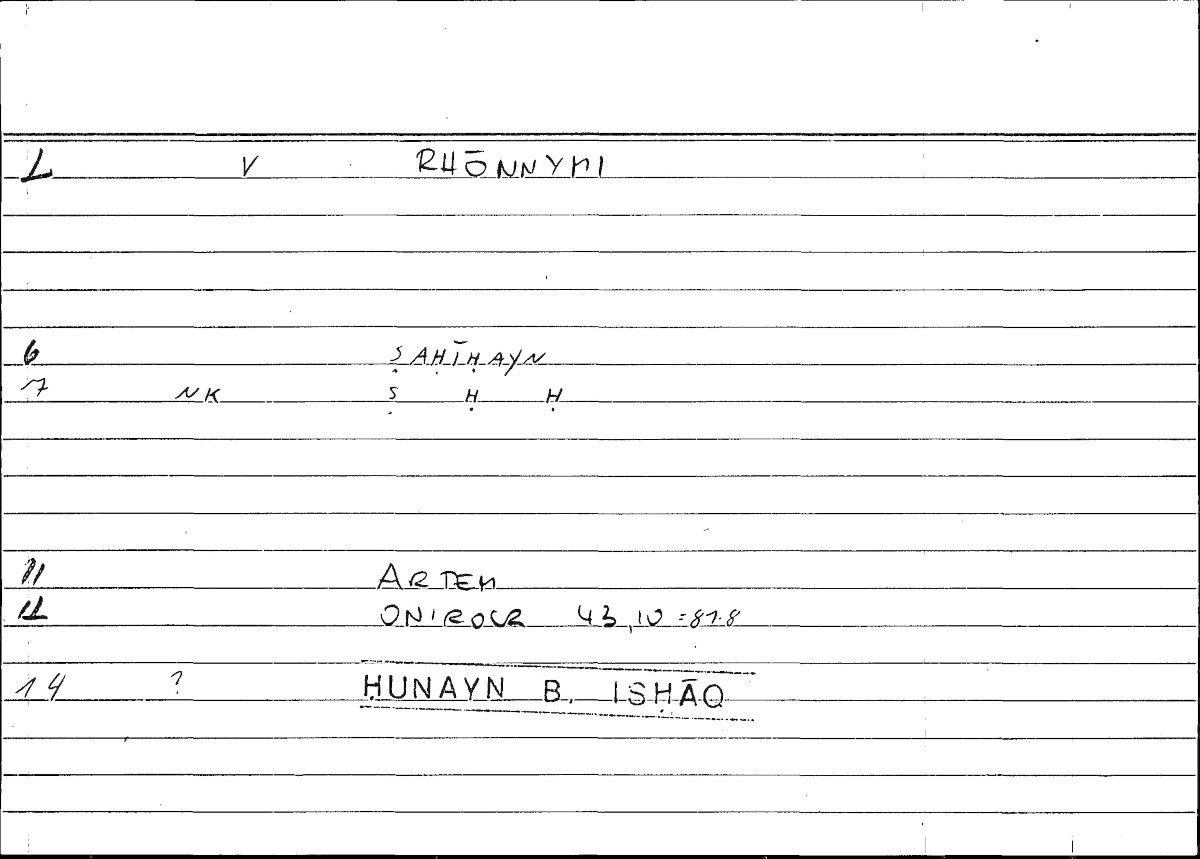 1 V RHŌNNYMI
6 ṢAḤĪḤAYN
7 NK Ṣ Ḥ Ḥ
11 ARTEM
12 ONIROCR 43,10 = 87.8
14 ? ḤUNAYN B. ISḤĀQ